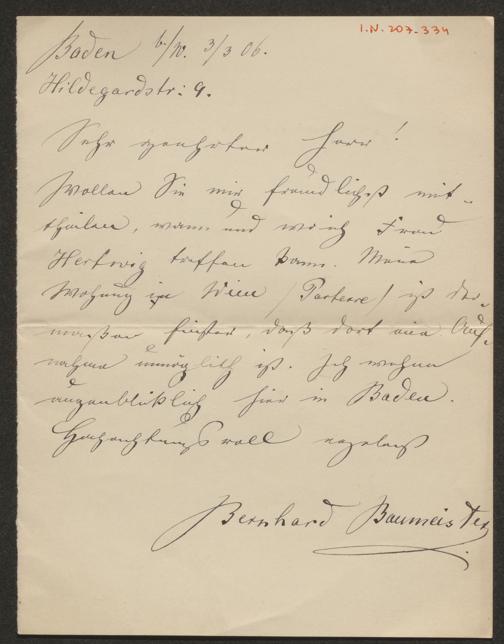 I.N. 207.334
Baden b/W. 3/3 06.
Hildegardstr: 9.
Sehr geehrter Herr!
Wollen Sie mir freundlichst mit-
theilen, wann und wo ich Frau
Hertwig treffen kann. Meine
Wohnung in Wien (Parterre) ist der-
maßen finster, daß dort eine Auf-
nahme unmöglich ist. Ich wohne
augenblicklich hier in Baden.
Hochachtungsvoll ergebenst
Bernhard Baumeister